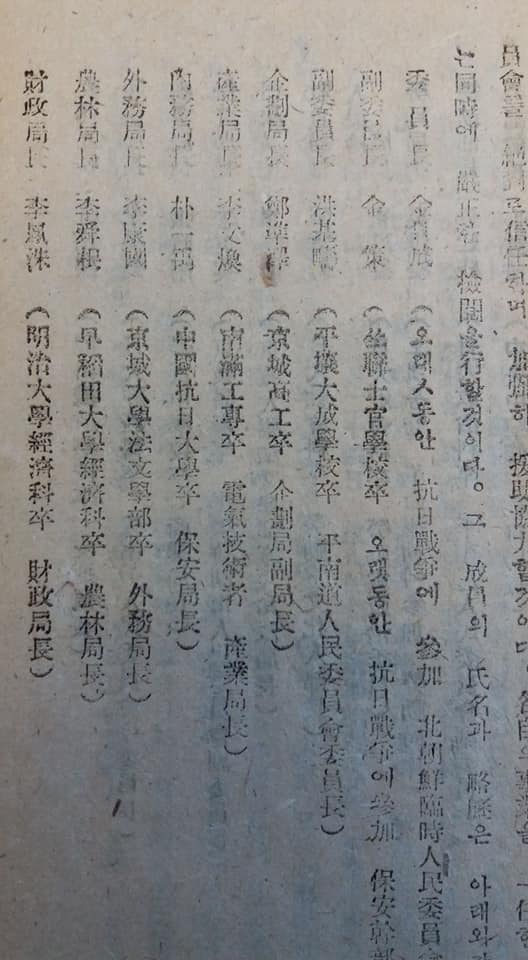 員會를 絶對로信任하며 加勢히 援助協力할것이다
는同時에 嚴正한 檢閱을行할것이다。그 成員의 氏名과 略歷은 아래와
委員長 金日成 (오래스동안 抗日戰爭에 參加 北朝鮮臨時人民委員會
副委員長 金策 (쏘聯士官學校卒 오랫동안 抗日戰爭에參加 保安幹部
副委員長 洪箕疇 (平壤大成學校卒 平南道人民委員會委員長)
企劃局長 鄭準澤 (京城高工卒 企劃局副局長)
產業局長 李文煥 (南滿工專卒 電氣技術者 產業局長)
內務局長 朴一禹 (中國抗日大學卒 保安局長)
外務局長 李康國 (京城大學法文學部卒 外務局長)
農林局長 李舜根 (早稻田大學經濟科卒 農林局長)
財政局長 李鳳洙 (明治大學經濟科卒 財政局長)